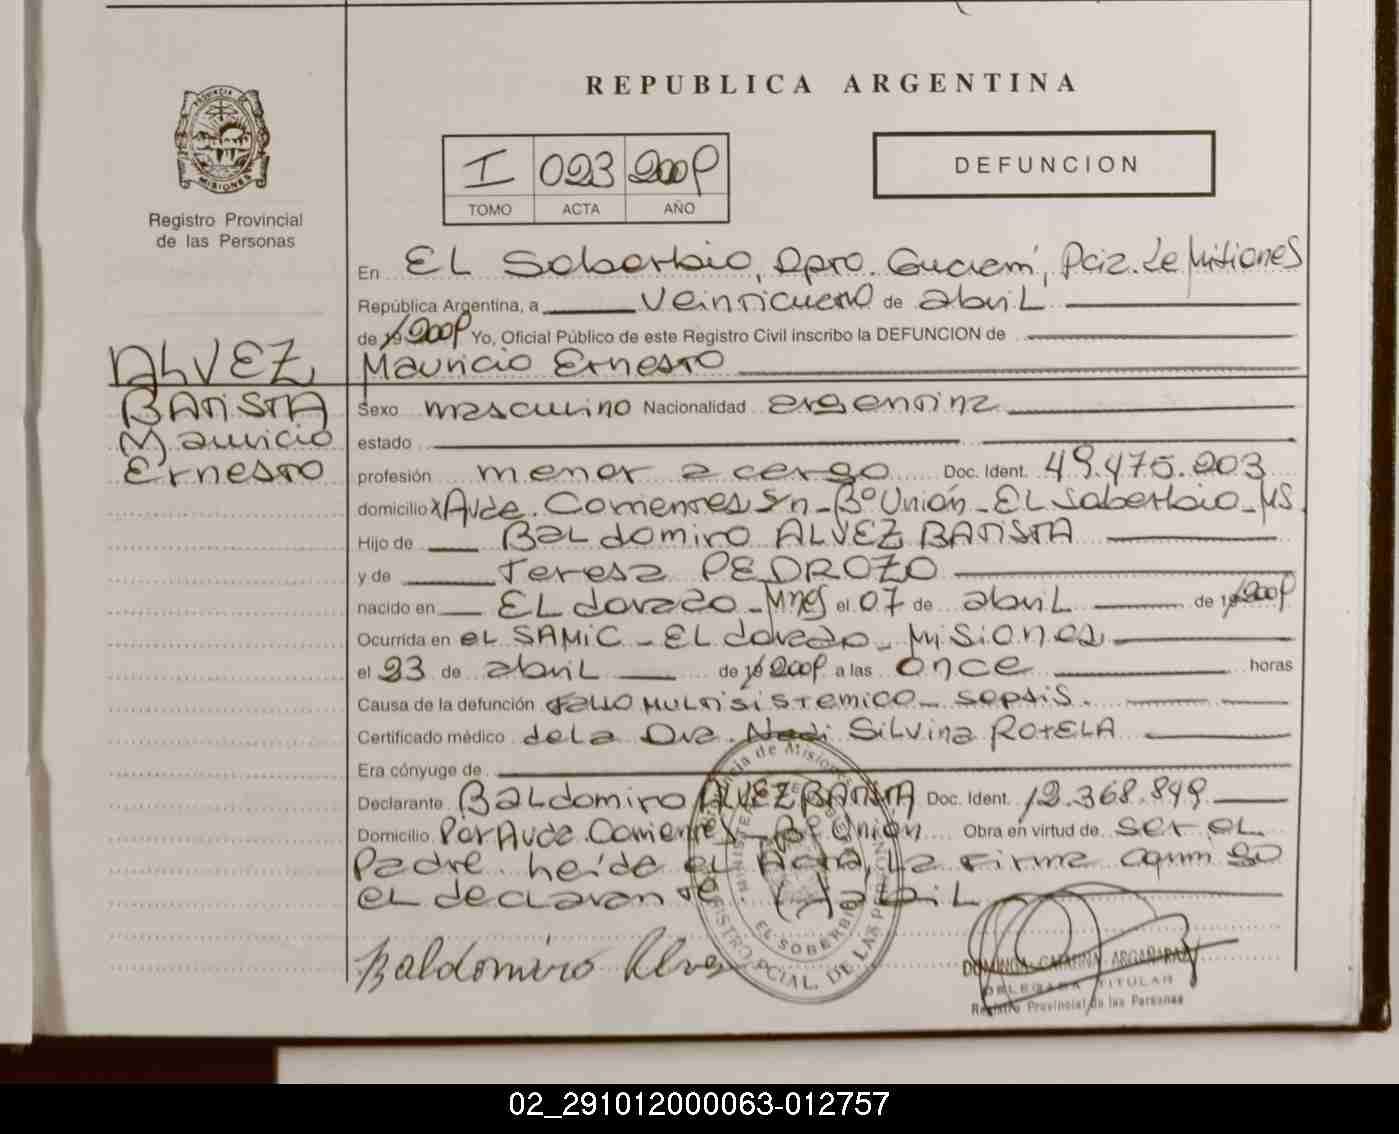 REPUBLICA ARGENTINA
PROVINCIA DE
MISIONES
Registro Provincial
de las Personas
I 023 2009
TOMO ACTA AÑO
DEFUNCION
En EL Soberbio, Dpto. Guaraní, Pcia. de Misiones
República Argentina, a veinticuatro de abril
de 19 2009 Yo, Oficial Público de este Registro Civil inscribo la DEFUNCION de
ALVEZ
BATISTA
Mauricio
Ernesto
Mauricio Ernesto
Sexo masculino Nacionalidad argentina
estado
profesión menor a cargo Doc. Ident. 49.475.203
domicilio Avda. Corrientes s/n - Bº Unión - EL Soberbio - MS
Hijo de BaLdomiro ALVEZ BATISTA
y de Teresa PEDROZO
nacido en ELdorado - Mnes el 07 de abril de 19 2009
Ocurrida en eL SAMIC - ELdorado - Misiones
el 23 de abriL de 19 2009 a las once horas
Causa de la defunción fallo multisistemico - sepsis.
Certificado médico de La Dra. Nadi SiLvina ROtELA
Era cónyuge de
Declarante BaLdomiro ALVEZ BATISTA Doc. Ident. 12.368.849
Domicilio Por Avda. Corrientes - Bº Unión Obra en virtud de ser eL
padre. Leída eL Acta, La firma conmigo
eL decLarante
Baldomiro Alvez
MINISTERIO
REGISTRO PCIAL. DE LAS PERSONAS
EL SOBERBIO
DOMINGA CATALINA ARGAÑARAZ
DELEGADA TITULAR
Registro Provincial de las Personas
02_291012000063-012757